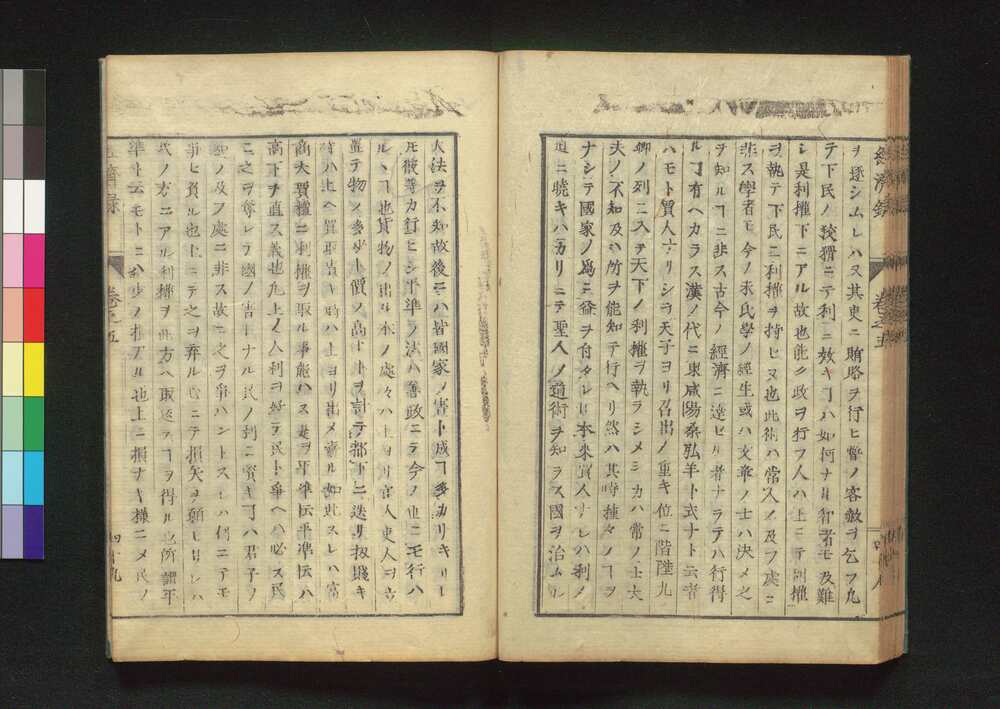 經濟録 卷之五
ヲ遂シムレハ又其吏ニ賄賂ヲ行ヒ誓ノ容赦ヲ乞フ凡
テ下民ノ狡猾ニテ利ニ效キヿハ如何ナル智者モ及難
シ是利權下ニアル故也能ク政ヲ行フ人ハ上ニテ利權
ヲ執テ下民ニ利權ヲ持ヒヌ也此術ハ常人ノ及フ處ニ
非ス學者モ今ノ朱氏學ノ經生或ハ文章ノ士ハ決メ之
ヲ知ルヿニ非ス古今ノ經濟ニ達セル者ナラテハ行得
ルヿ有ヘカラス漢ノ代ニ東咸陽桑弘羊ト弍ナト云者
ハモト賈人ナリシヲ天子ヨリ召出ノ重キ位ニ階陞九
卿ノ列ニ入ヲ天下ノ利權ヲ執ラシメシカハ常ノ士大
夫ノ不知及ハ所ヲ能知テ行ヘリ然ハ其時種々ノヿヲ
ナシテ國家ノ爲ニ益ヲ付タレ𪜈本來賈人ナレハ利ノ
道ニ曉キハカリニテ聖人ノ道術ヲ知ラス國ヲ治ムル
大法ヲ不知故後ニハ皆國家ノ害ト成ヿ多カリキ
彼等カ行ヒシ平準ノ法ハ善政ニテ今ノ世ニモ行ハ
ルヿ也貨物ノ出ル本ノ處々ハ上ヨリ官人吏人ヲ
置テ物ノ多少ト價ノ高下トヲ計テ都下ニ送リ扨賤キ
時ハ上ヘ買取貴キ時ハ上ヨリ出メ賣ル如此スレハ富
商大賈擅ニ利權ヲ取ル事能ハス是ヲ平準ト云平準トハ
高下ヲ直ス義也凡上ノ人利ヲ好テ民ト爭ヘハ必ス民
ニ之ヲ奪レテ國ノ害トナル民ノ利ニ賢キヿハ君子ノ
智ノ及フ處ニ非ス故ニ之ヲ爭ハントスレハ何ニテモ
爭ヒ負ル也上ニテ之ヲ弃ル心ニテ損失ヲ顧サレハ
民ノ方ニアル利權ヲ此方ヘ取返スヿヲ得ル也所謂平
準ト云モトニハ少ノ損アル也上ニ損ナキ樣ニメ民ノ
經濟録 卷之五 四十九